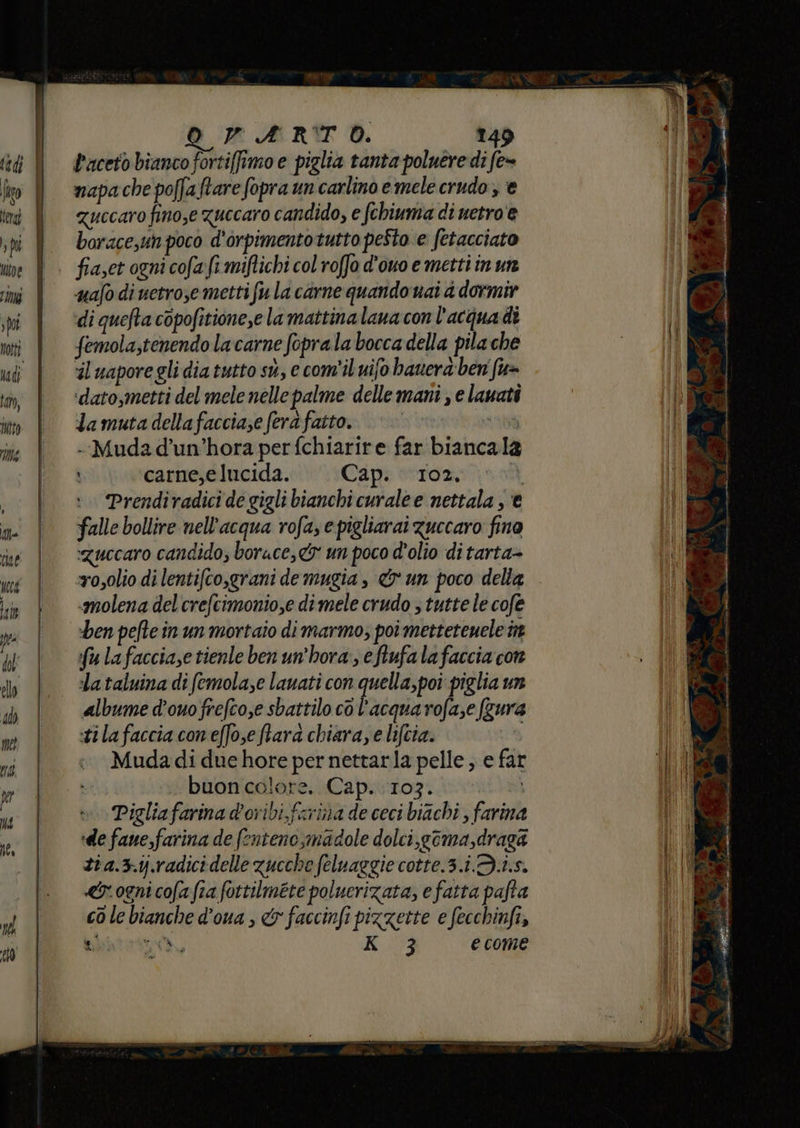 QVARTO. 149
l'aceto bianco fortiſſimo e piglia tanta poluere di ſe-
napa che poſſa ſtare ſopra un carlino e mele crudo, e
zuccaro fino,e zuccaro candido, e ſchiuma di uetro e
borace,un poco d'orpimento tutto peſto e ſetacciato
fia,et ogni coſa ſi miſtichi col roſſo d'ouo e metti in un
uaſo di uetro,e metti ſu la carne quando uai à dormir
di queſta cōpoſitione,e la mattina laua con l'acqua di
ſemola,tenendo la carne ſopra la bocca della pila che
il uapore gli dia tutto sù, e com'il uiſo hauerà ben ſu-
dato,metti del mele nelle palme delle mani, e lauati
la muta della faccia,e ſerà fatto.
Muda d'un'hora per ſchiarir e far bianca la
carne,e lucida. Cap. 102.
Prendi radici de gigli bianchi curale e nettala, e
falle bollire nell'acqua roſa, e pigliarai zuccaro fino
zuccaro candido, borace,& un poco d'olio di tarta-
ro,olio di lentiſco,grani de mugia, & un poco della
molena del creſcimonio,e di mele crudo, tutte le coſe
ben peſte in un mortaio di marmo, poi metteteuele in
ſu la faccia,e tienle ben un'hora, e ſtufa la faccia con
la taluina di ſemola,e lauati con quella,poi piglia un
albume d'ouo freſco,e sbattilo cō l'acqua roſa,e ſgura
ti la faccia con eſſo,e ſtarà chiara, e liſcia.
Muda di due hore per nettar la pelle, e far
buon colore. Cap. 103.
Piglia farina d'oribi,farina de ceci biāchi, farina
de faue,farina de ſenteno,mādole dolci,gēma,dragā
ti a.3.ij.radici delle zucche ſeluaggie cotte.3.i.Ə.i.s.
& ogni coſa ſia ſottilmēte poluerizata, e fatta paſta
cō le bianche d'oua, & faccinſi pizzette e ſecchinſi,
K 3 e come